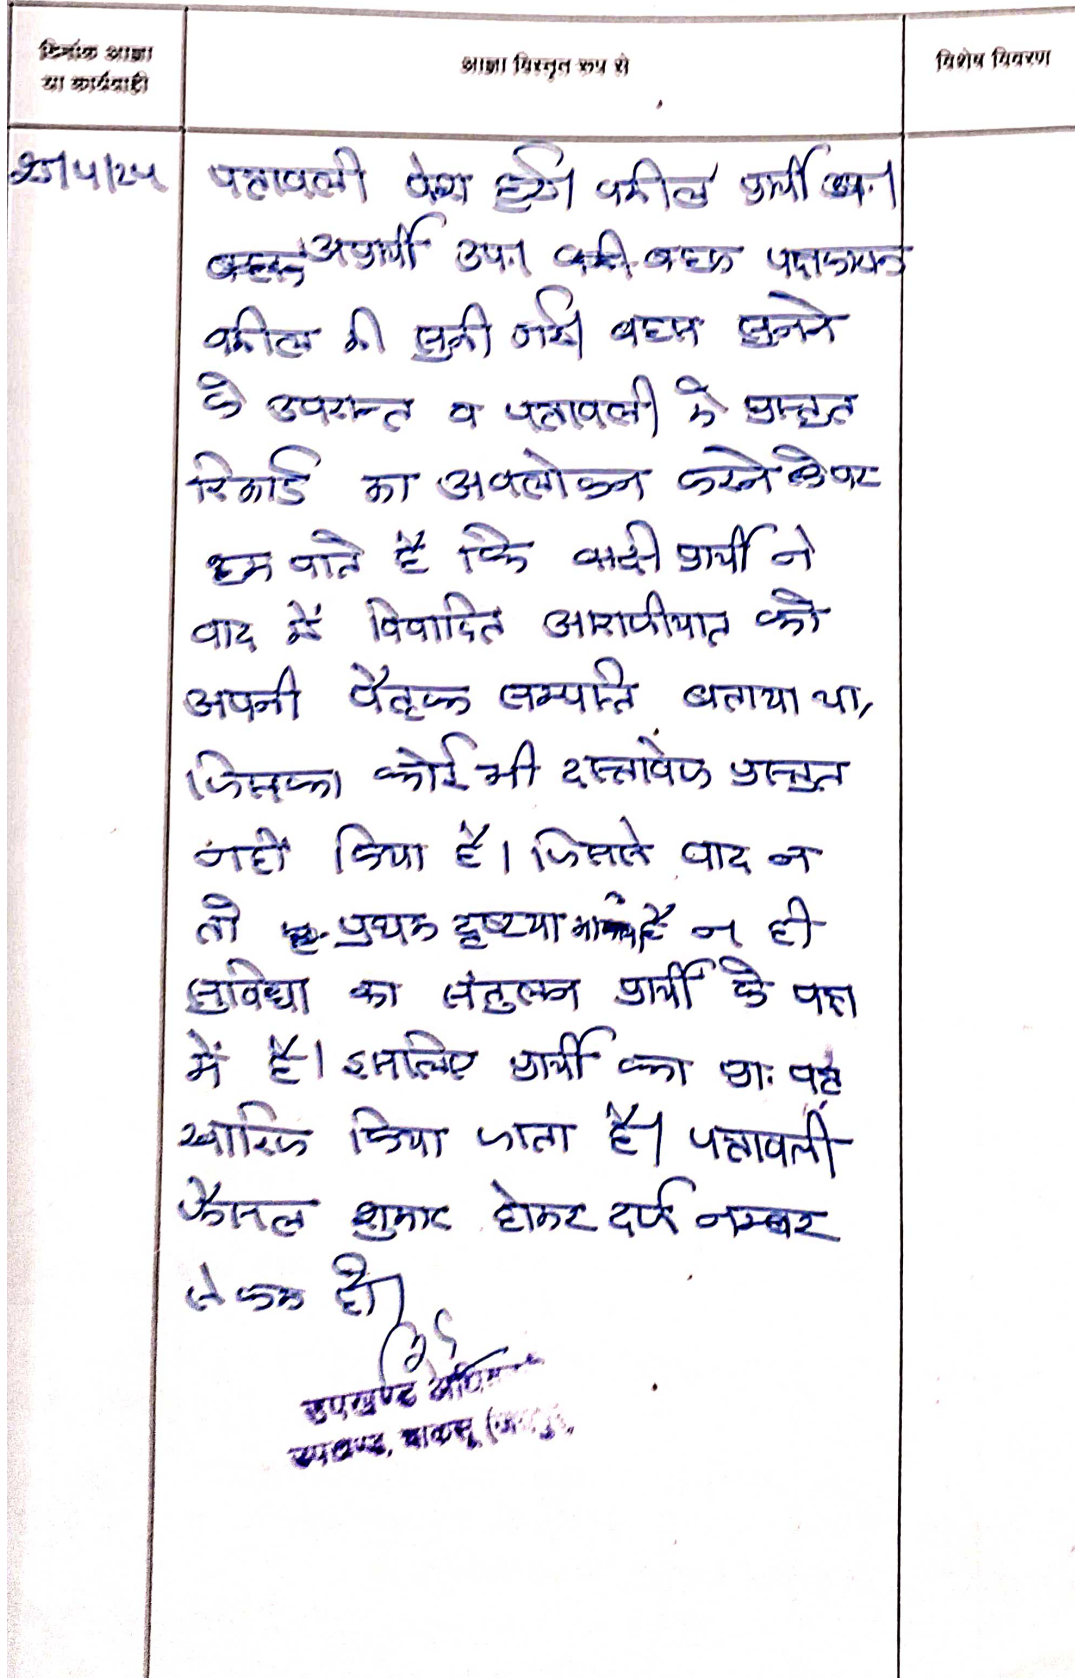 दिनांक आज्ञा
या कार्यवाही
आज्ञा विस्तृत रूप से
विशेष विवरण
पत्रावली पेश हुई। वकील प्रार्थी उप.।
अप्रार्थी उप.। बहस पक्षकारान
वकील की सुनी गयी। बहस सुनने
के उपरान्त व पत्रावली मे प्रस्तुत
रिकार्ड का अवलोकन करने के पर
हम पाते है कि वादी प्रार्थी ने
वाद में विवादित आराजीयात को
अपनी पैतृक सम्पति बताया था,
जिसका कोई भी दस्तावेज प्रस्तुत
नहीं किया है। जिससे वाद न
तो प्रथम दृष्टया है न ही
सुविधा का संतुलन प्रार्थी के पक्ष
में है। इसलिए प्रार्थी का प्रा. पत्र
खारिज किया जाता है। पत्रावली
फैसल शुमार होकर दर्ज नम्बर
से कम हो।
उपखण्ड
उपखण्ड, चाकसू